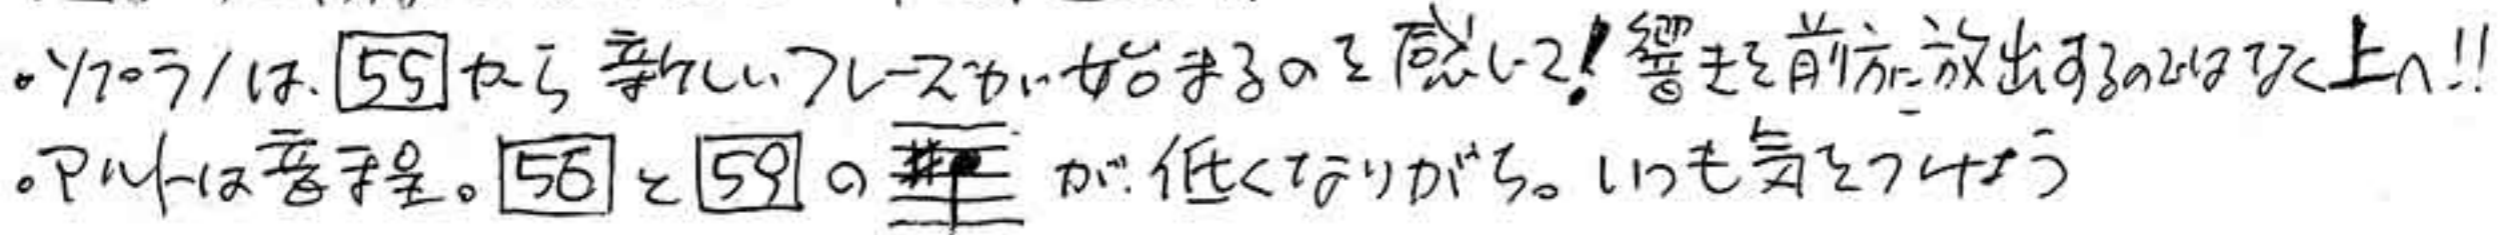 ・ソプラノは、55から新しいフレーズが始まるのを感じて!響きを前方に放出するのではなく上へ!!
・アルトは音程。56と59の が低くなりがち。いつも気をつけよう